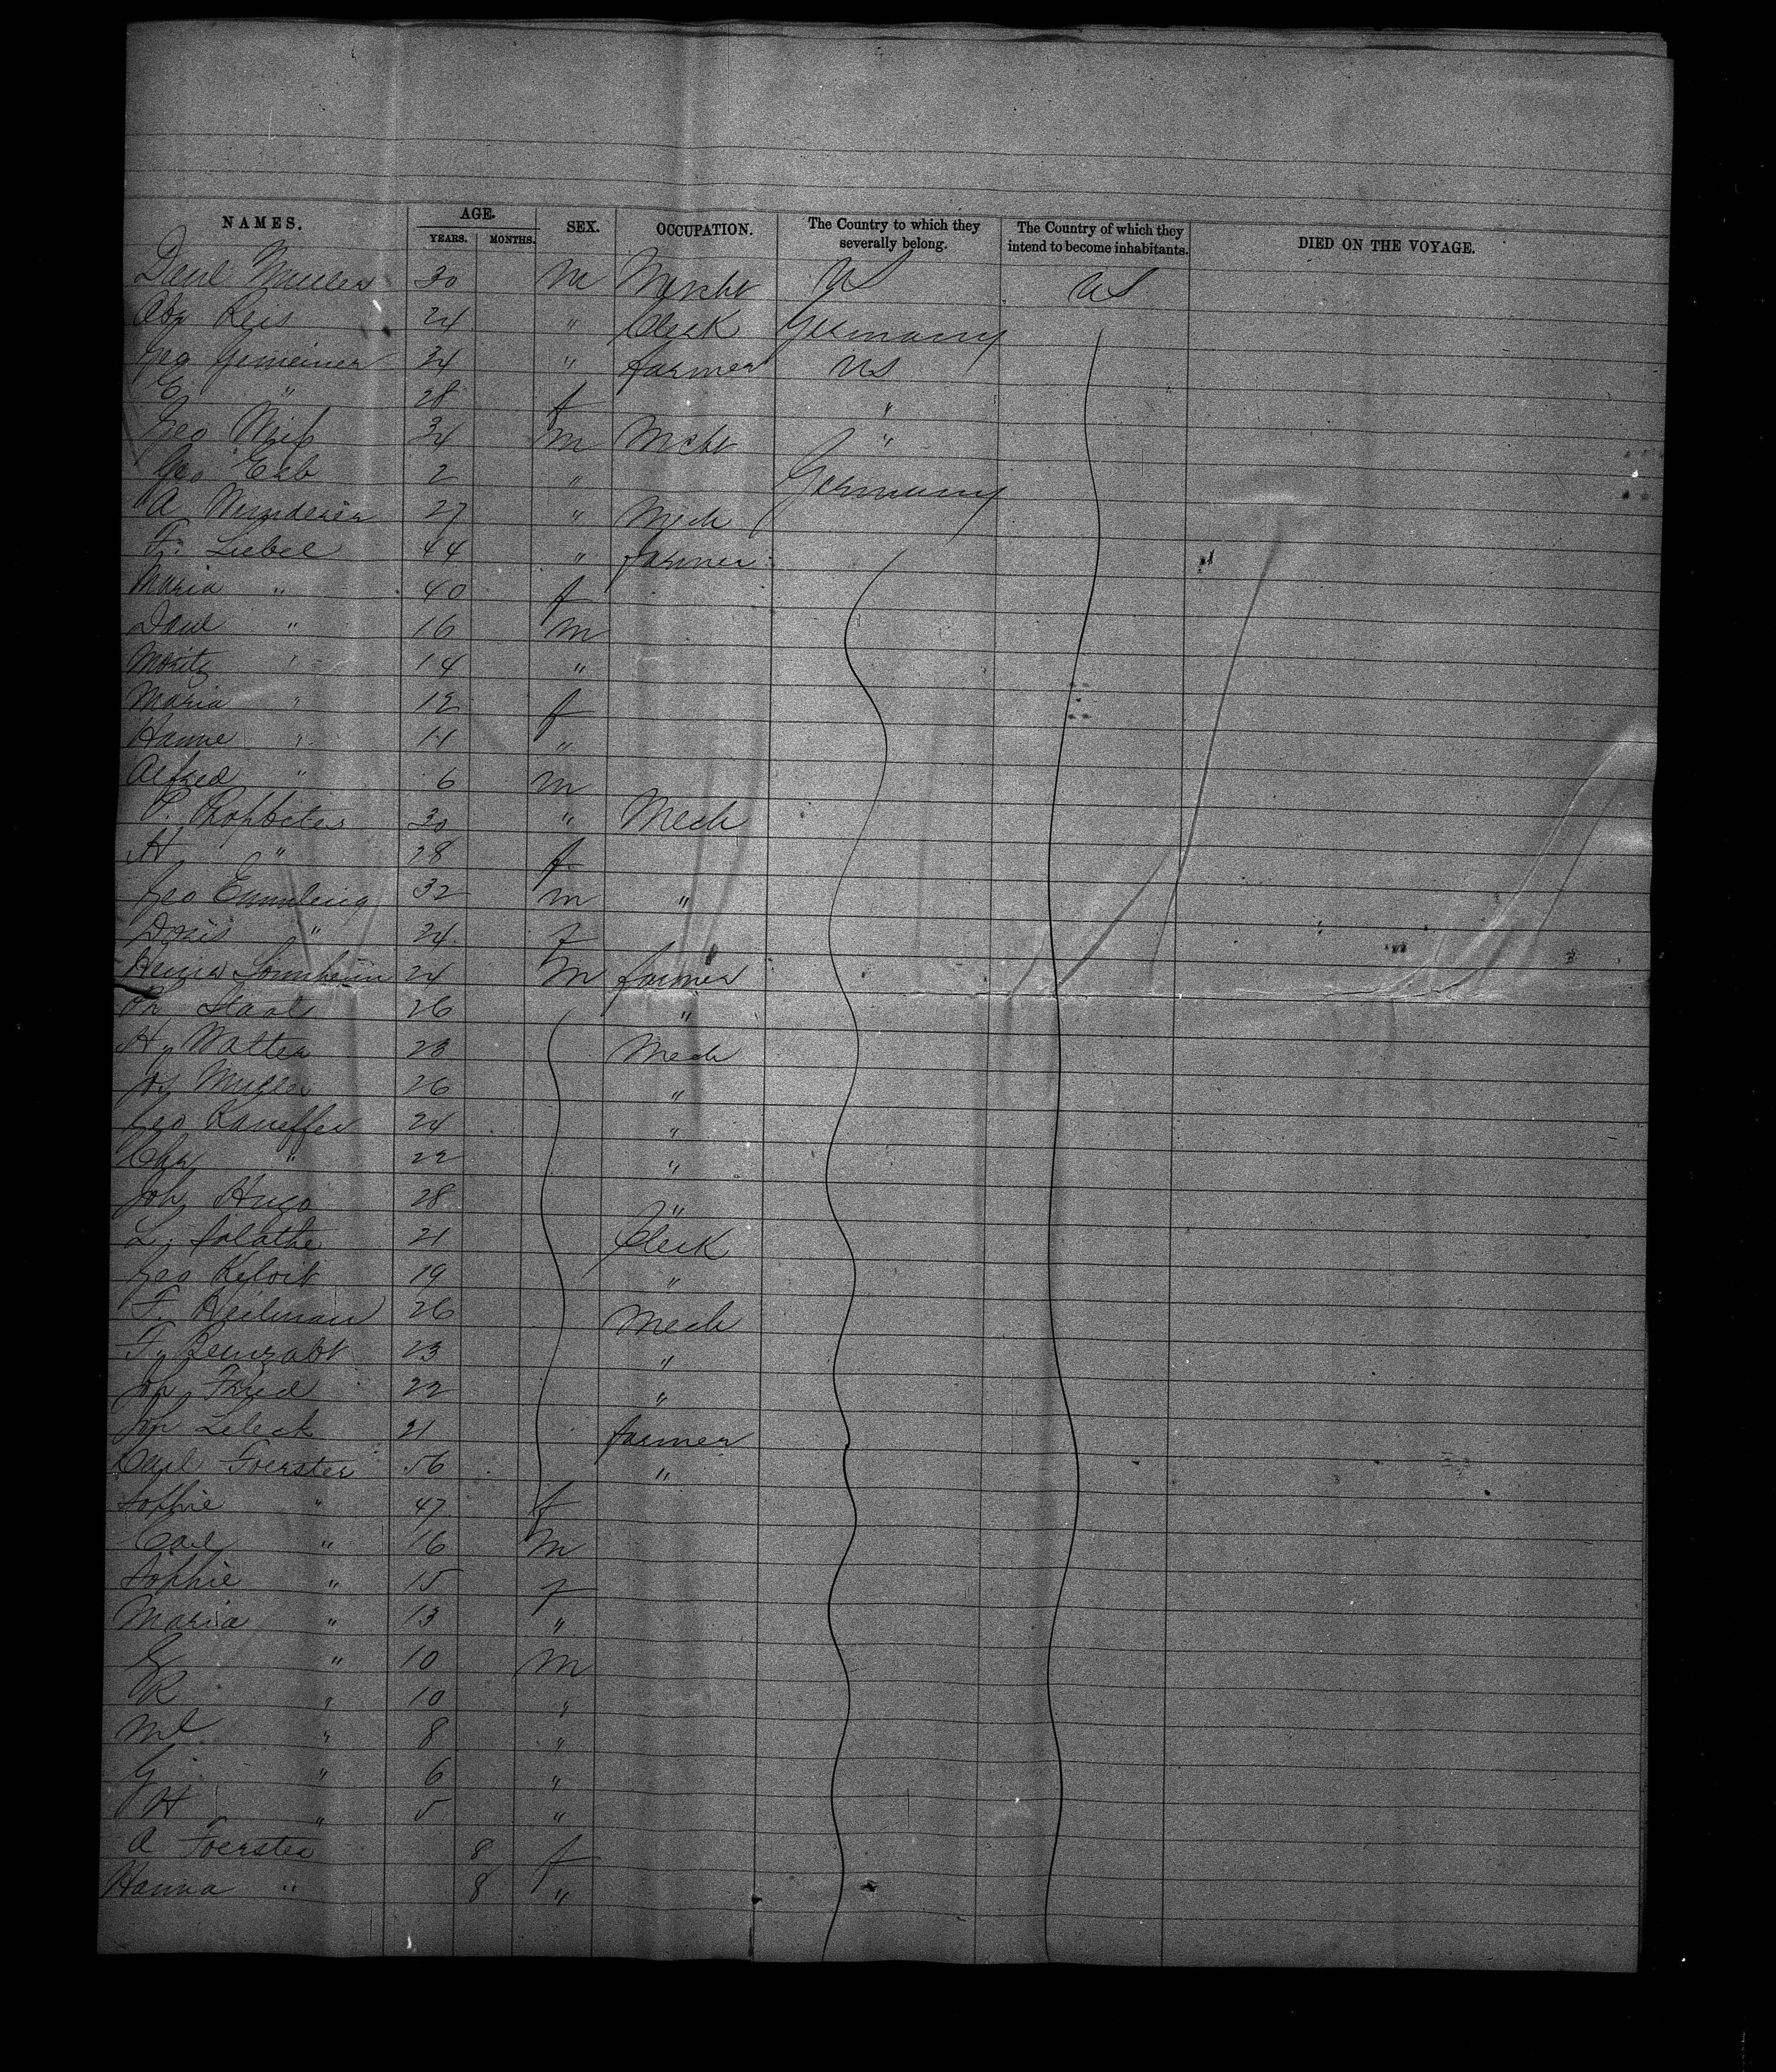 NAMES. AGE. YEARS. MONTHS. SEX. OCCUPATION. The Country to which they severally belong. The Country of which they intend to become inhabitants. DIED ON THE VOYAGE.
Danl Muller 30 M Mercht US US
Reis 24 " Clerk Germany
Geo Gemeiner 34 " farmer US
" 28 f "
Geo 34 m Mcht "
Geo Erb 2 " Germany
A 27 " Mech
Fr. Liebel 44 " farmer
Maria " 40 f
Danl " 16 m
Moritz " 14 "
Maria " 12 f
Hanne " 11 "
Alfred " 6 m
P. 30 " Mech
H " 28 f
Geo Emmling 32 m "
Doris " 24 f
Sonnheim 24 m farmer
Ph 26 "
Hy Walter 23 Mech
Jos Muller 26 "
Geo Kaneffer 24 "
Chs " 22 "
Joh Hugo 28 "
L. Salathe 21 Clerk
Geo 19 "
F. Heilman 26 Mech
Fr 23 "
Joh Fried 22 "
Joh Lebeck 21 farmer
Carl Foerster 56 "
Sophie " 47 f
Carl " 16 m
Sophie " 15 f
Maria " 13 "
" 10 m
R " 10 "
Ml " 8 "
G " 6 "
H " 5 "
A Foerster 8 f
Hanna " 8 "